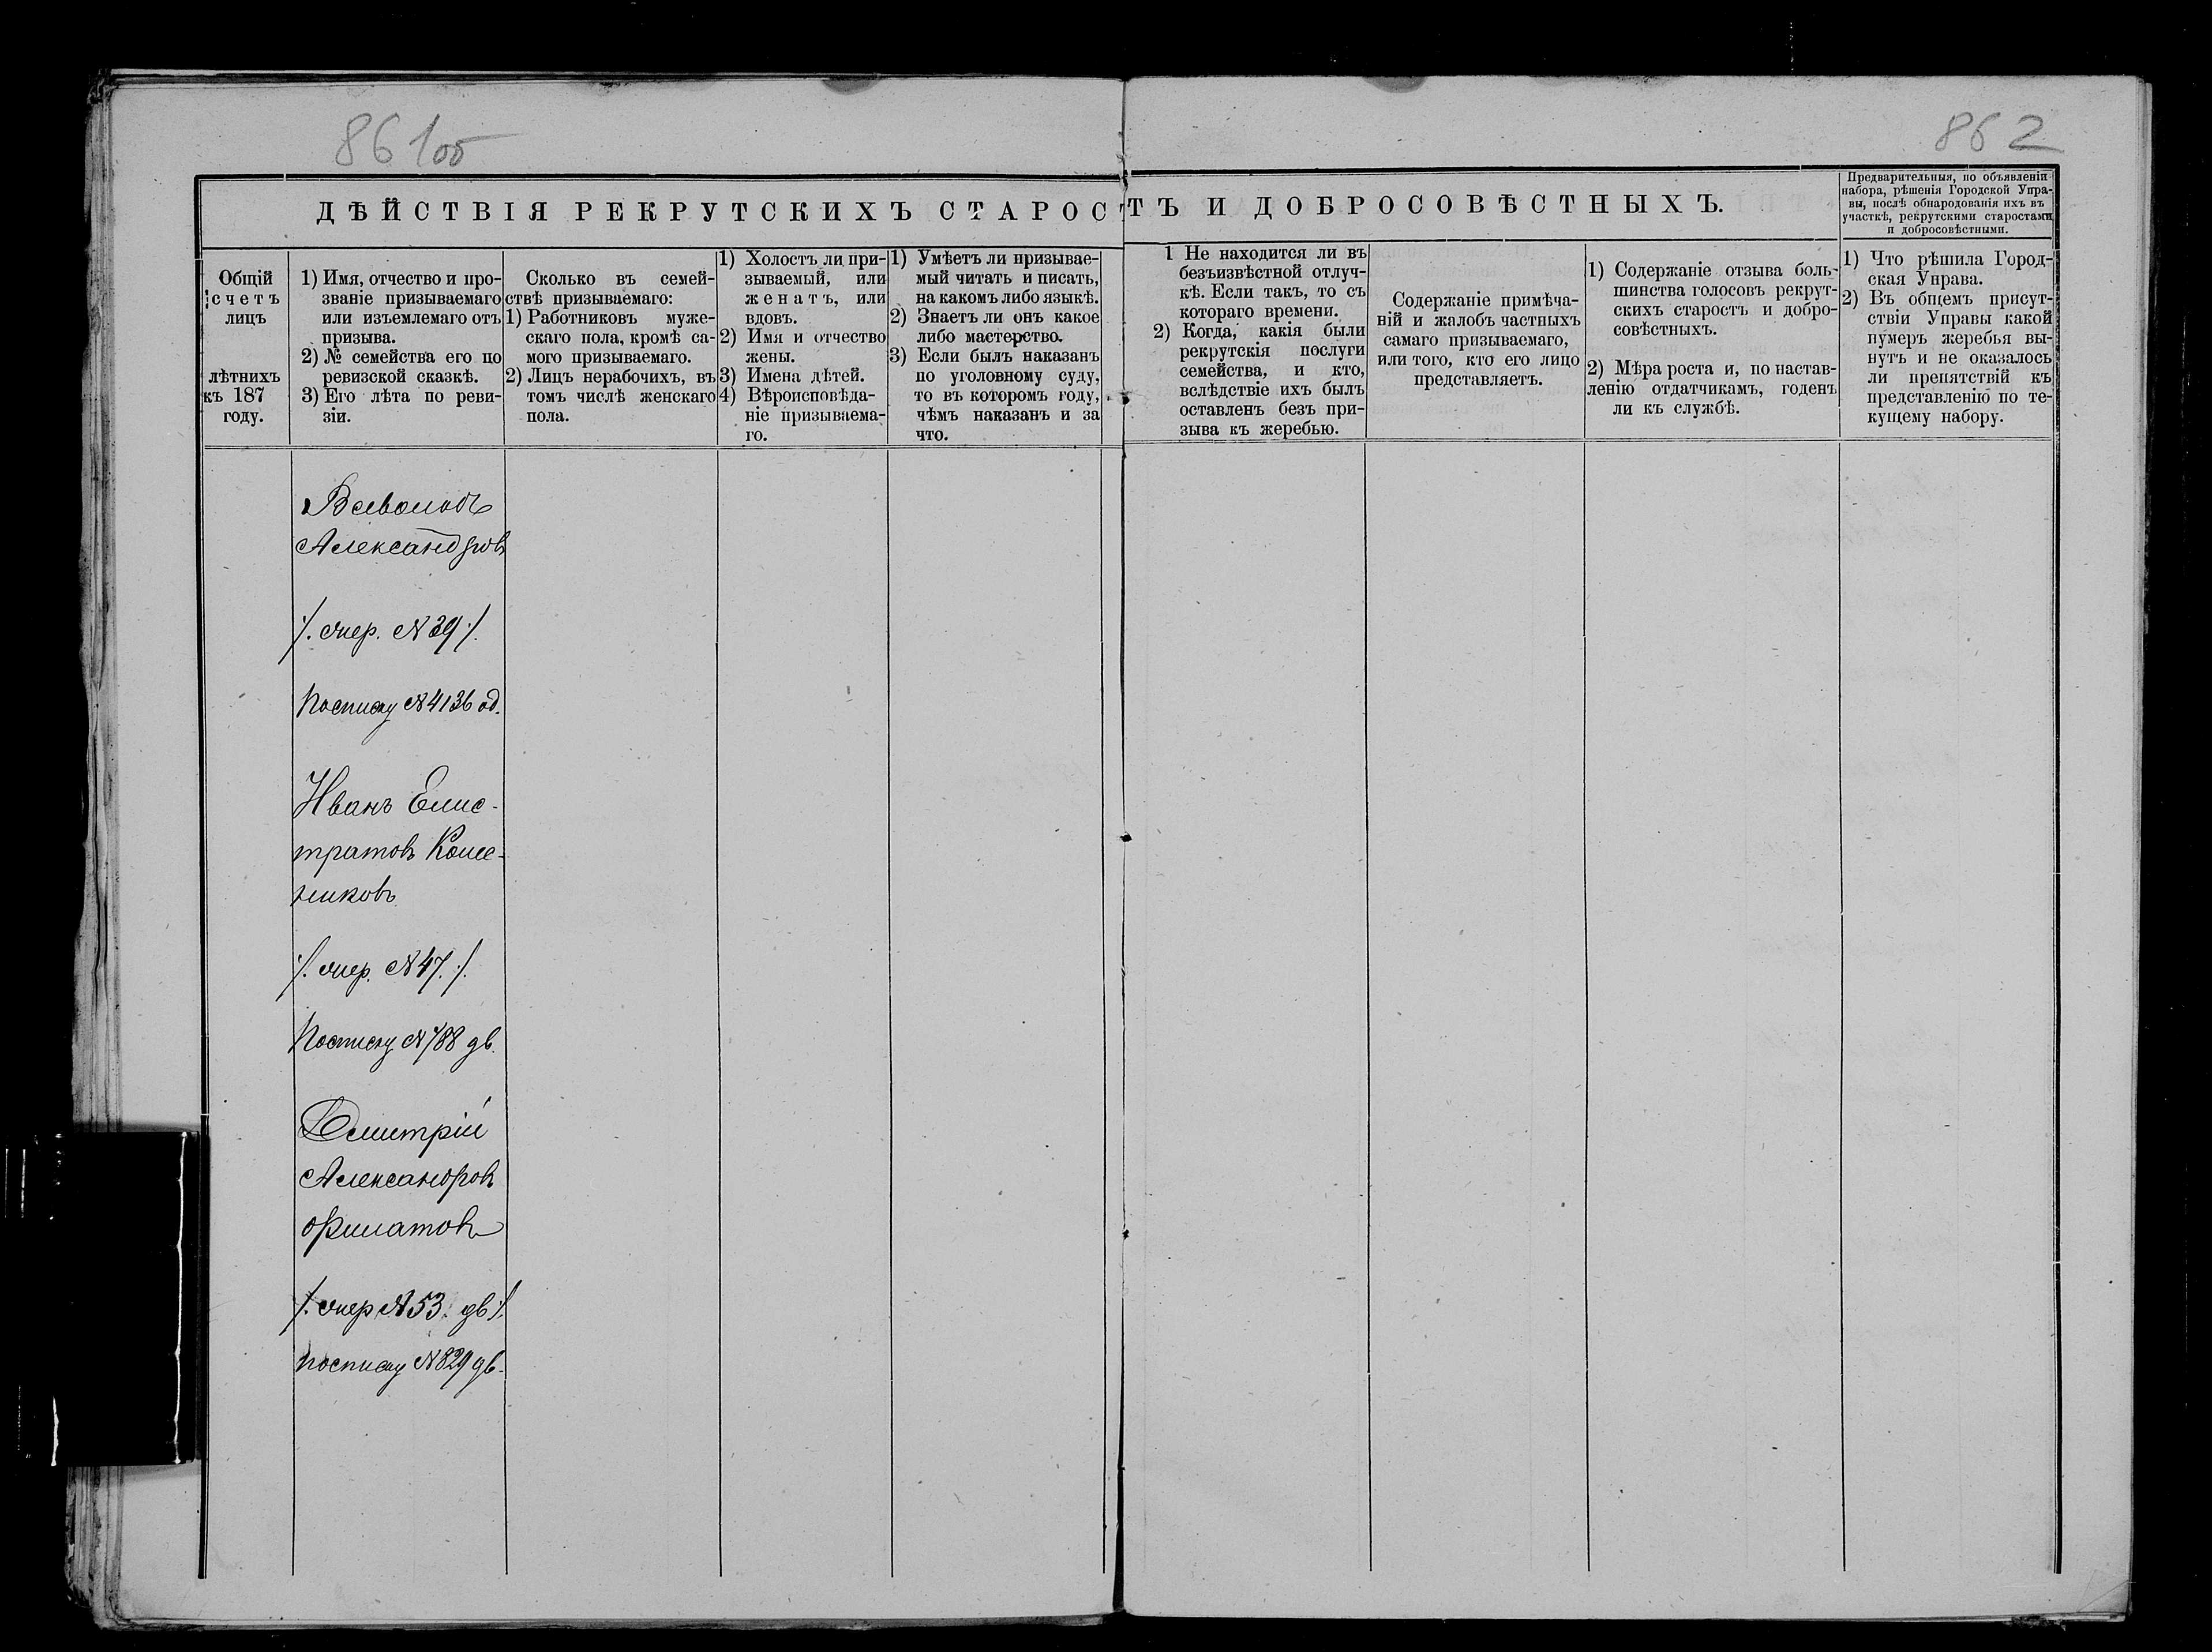 861об
862
ДѢЙСТВІЯ РЕКРУТСКИХЪ СТАРОСТЪ И ДОБРОСОВѢСТНЫХЪ.
Предварительныя, по объявленіи
набора, рѣшенія Городской Упра-
вы, послѣ обнародованія ихъ въ
участкѣ, рекрутскими старостами
и добросовѣстными.
Общій
счетъ
лицъ
лѣтнихъ
къ 187
году.
1) Имя, отчество и про-
званіе призываемаго
или изъемлемаго отъ
призыва.
2) № семейства его по
ревизской сказкѣ.
3) Его лѣта по реви-
зіи.
Сколько въ семей-
ствѣ призываемаго:
1) Работниковъ муже-
скаго пола, кромѣ са-
мого призываемаго.
2) Лицъ нерабочихъ, въ
томъ числѣ женскаго
пола.
1) Холостъ ли при-
зываемый, или
женатъ, или
вдовъ.
2) Имя и отчество
жены.
3) Имена дѣтей.
4) Вѣроисповѣда-
ніе призываема-
го.
1) Умѣетъ ли призывае-
мый читать и писать,
на какомъ либо языкѣ.
2) Знаетъ ли онъ какое
либо мастерство.
3) Если былъ наказанъ
по уголовному суду,
то въ которомъ году,
чѣмъ наказанъ и за
что.
1 Не находится ли въ
безъизвѣстной отлуч-
кѣ. Если такъ, то съ
котораго времени.
2) Когда, какія были
рекрутскія послуги
семейства, и кто,
вслѣдствіе ихъ былъ
оставленъ безъ при-
зыва къ жеребью.
Содержаніе примѣча-
ній и жалобъ частныхъ
самаго призываемаго,
или того, кто его лицо
представляетъ.
1) Содержаніе отзыва боль-
шинства голосовъ рекрут-
скихъ старостъ и добро-
совѣстныхъ.
2) Мѣра роста и, по настав-
ленію отдатчикамъ, годенъ
ли къ службѣ.
1) Что рѣшила Город-
ская Управа.
2) Въ общемъ присут-
ствіи Управы какой
нумеръ жеребья вы-
нутъ и не оказалось
ли препятствій къ
представленію по те-
кущему набору.
Всеволодъ
Александровъ
/. очер. №39 ./.
По списку №4136 од.
Иванъ Елис-
тратовъ
/. очер. №47. ./.
По списку №788 дв.
Дмитрій
Александровъ
Филатовъ
/. очер №53. дв ./.
по списку №829 дв.